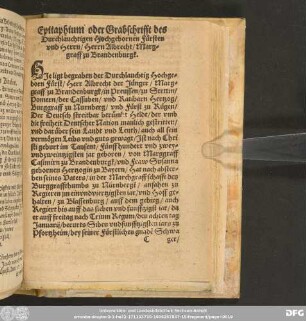 Epitaphium oder Grabschrifft des
Durchlauchtigen Hochgebornen Fürsten
vnd Herrn, Herrn Albrecht, Marg-
graff zu Brandenburgk.
HIe ligt begraben der Durchlauchtig Hochge-
born Fürst, Herr Albrecht der Jünger, Marg-
graff zu Brandenburgk, in Preussen, zu Stettin,
Pomern, der Cassuben, vnd Wenden Hertzog,
Burggraff zu Nürnberg, vnd Fürst zu Rügen,
Der Deutsch streitbar Held, der vmb
die freiheit Deutscher Nation mannlich gestritten,
vnd darüber sein Landt vnd Leuth, auch all sein
vermögen Leibs vnd guts gewagt, Ist nach Chri
sti geburt im Tausent, Fünffhundert vnd zwey-
vndzwentzigsten jar geboren, von Marggraff
Casimirn zu Brandenburgk, vnd Fraw Susanna
gebornen Hertzogin zu Bayern, Hat nach abster-
ben seines Vaters, in der Marckgraffschafft des
Burggraffthumbs zu Nürnbergk, anfahen zu
Regiern im einvndviertzigsten jar, vnd Hoff ge-
halten, zu Blassenburg, auff dem gebirg, auch
Regiert biß auff das sieben vnd fünfftzigst jar, da
er auff freitag nach Trium Regum, den achten tag
Januarij, vnd fünfftzigsten jars zu
Pfortzheim, bey seiner Fürstlichen gnade Schwa
C ger,